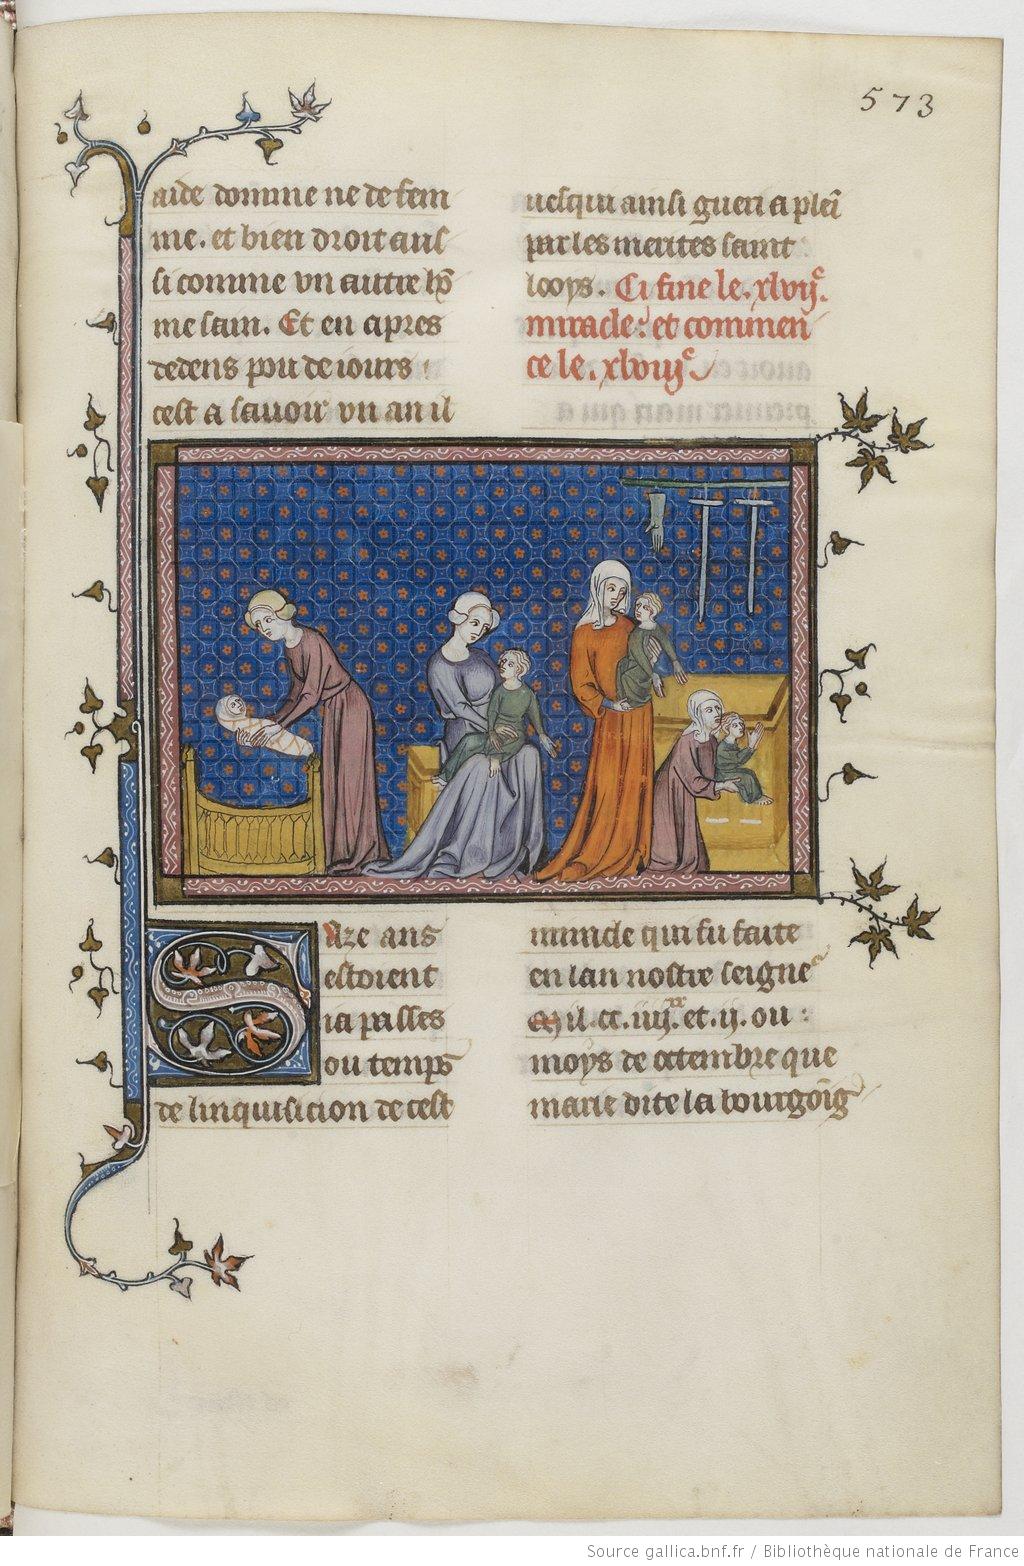 573
aide domme ne de fem
me. et bien droit aus
si comme vn autre hõ
me sain. Et en apres
dedens pou de iours
cest a sauoir vn an il
uesqui ainsi gueri a plei̅
par les merites saint
looys. Ci fine le .xlvij.e
miracle: et commen
ce le .xlviij.e
Saze ans
estoient
ia passes
ou temps
de linquisicion de cest
miracle qui fu faite
en lan nostre seigne
Mil .cc. iiij.xx et .ij. ou
moys de octembre que
marie dite la bourgõig
Source gallica.bnf.fr / Bibliothèque nationale de France